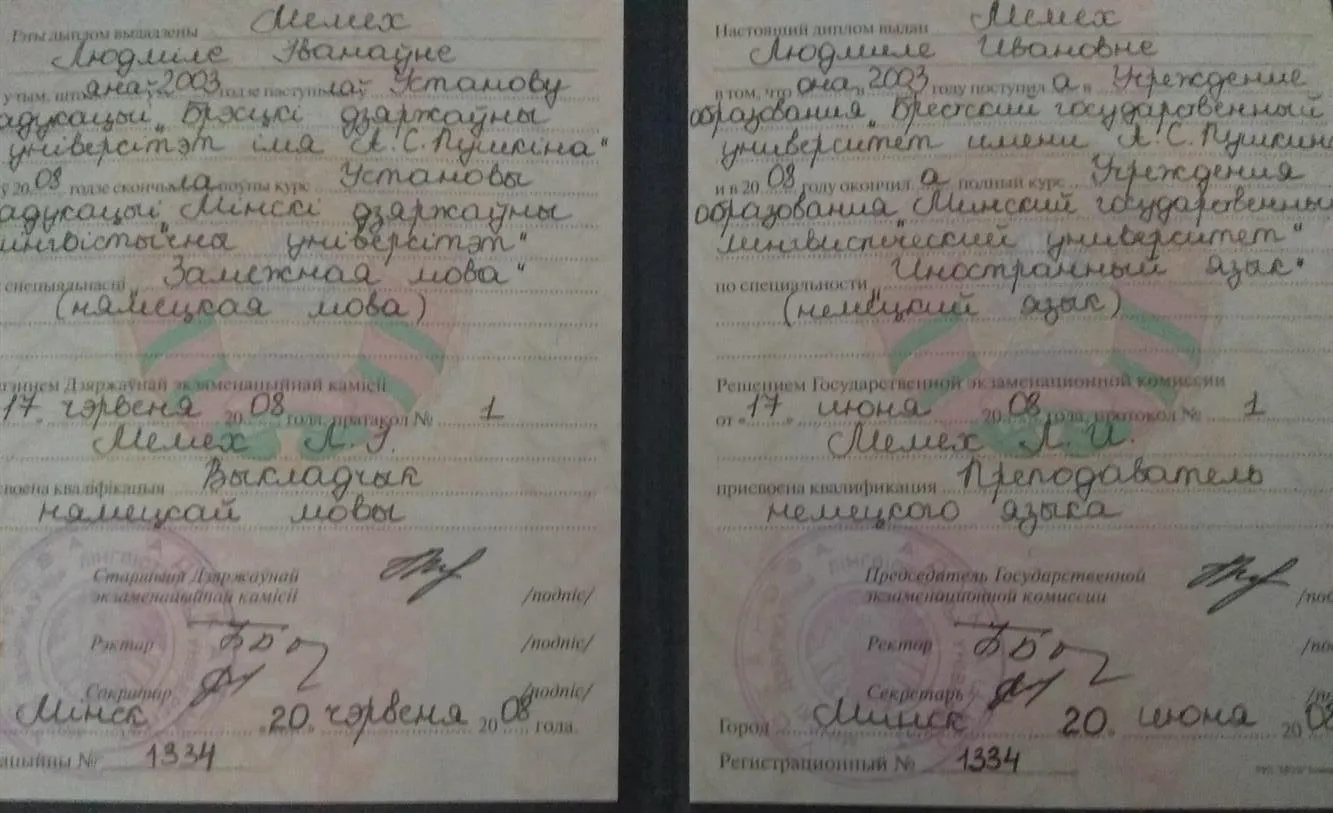 Гэты дыплом выдадзены Мемех
Людміле Іванаўне
у тым, што яна ў 2003 годзе паступіла ў Установу
адукацыі „Брэсцкі дзяржаўны
універсітэт імя А.С.Пушкіна"
ў 2008 годзе скончыла поўны курс Установы
адукацыі „Мінскі дзяржаўны
лінгвістычны універсітэт"
спецыяльнасці „Замежная мова"
(нямецкая мова)
рашэннем Дзяржаўнай экзаменацыйнай камісіі
17 чэрвеня 2008 года, пратакол № 1
Мемех Л. І.
прысвоена кваліфікацыя Выкладчык
нямецкай мовы
Старшыня Дзяржаўнай
экзаменацыйнай камісіі /подпіс/
Рэктар /подпіс/
Сакратар /подпіс/
Мінск „20" чэрвеня 2008 года.
рэгістрацыйны № 1334
Настоящий диплом выдан Мемех
Людмиле Ивановне
в том, что она в 2003 году поступила в Учреждение
образования „Брестский государственный
университет имени А.С.Пушкина
и в 2008 году окончила полный курс Учреждения
образования „Минский государственный
лингвистический университет"
по специальности „Иностранный язык"
(немецкий язык)
Решением Государственной экзаменационной комиссии
от «17» июня 2008 года, протокол № 1
Мемех Л. И.
присвоена квалификация Преподаватель
немецкого языка
Председатель Государственной
экзаменационной комиссии
Ректор
Секретарь
Город Минск „20" июня 2008
Регистрационный № 1334